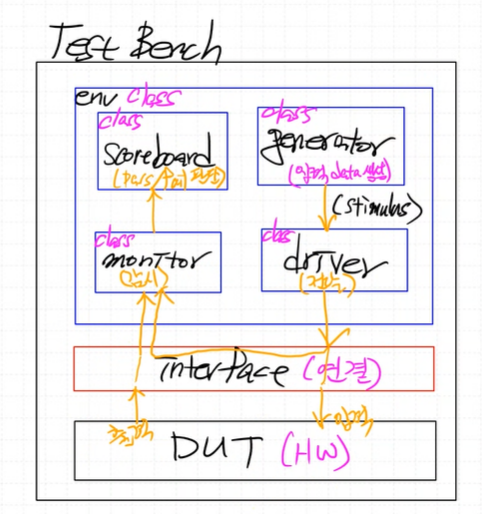 Test Bench
env class
class
scoreboard
(pass/fail 판단)
class
generator
(입력 data 생성)
(stimulus)
class
monitor
(감시)
class
driver
(전송)
interface (연결)
출력
입력
DUT (HW)